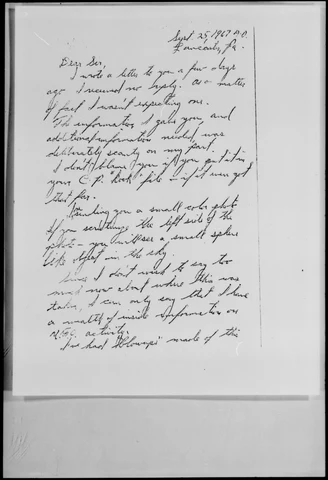 Sept. 25, 1967 A.D.
Pa.
Dear Sir,
I wrote a letter to you a few days
ago I received no reply. As a matter
of fact I wasn't expecting one.
The information I gave you, and
additional information needed was
deliberately scanty on my part.
I don't blame you if you put it in
your C.P. "Kook" file – if it ever got
that far.
Sending you a small color photo
If you scrutinize the left side of the
photo – you will see a small sphere
like object in the sky.
Since I don't want to say too
much now about where this was
taken, I can only say that I have
a wealth of inside information on
activity.
I've had "Blowups" made of this